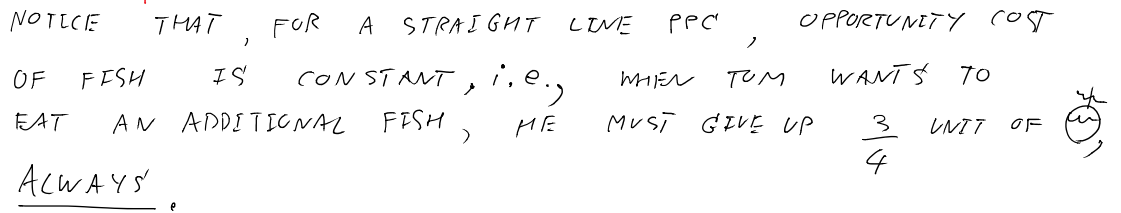 NOTICE THAT, FOR A STRAIGHT LINE PPC, OPPORTUNITY COST
OF FISH IS CONSTANT, i.e., WHEN TOM WANTS TO
EAT AN ADDITIONAL FISH, HE MUST GIVE UP 3/4 UNIT OF ,
ALWAYS.